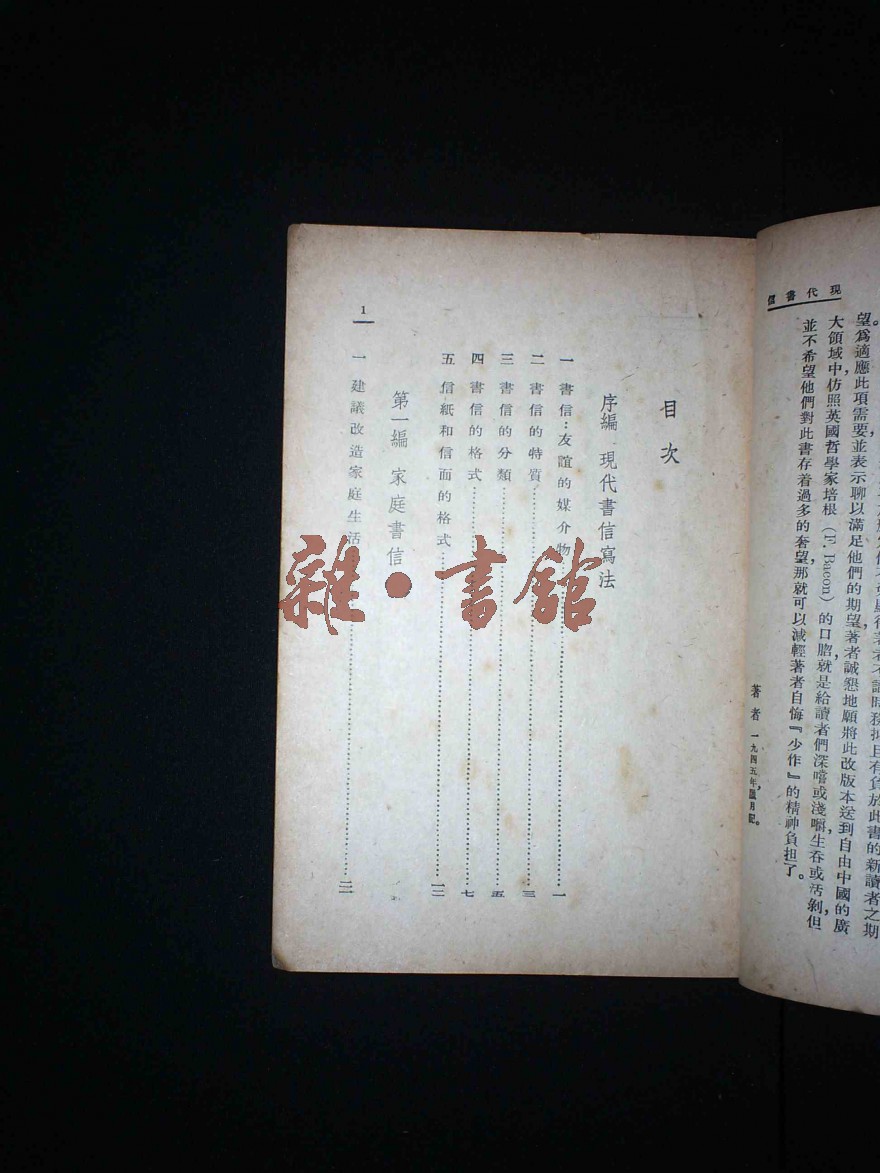 現代書信
望爲適應此項需要並表示聊以滿足他們的期望,著者誠懇地願將此改版本送到自由中國的廣
大領域中仿照英國哲學家培根(F. Bacon)的口脗就是給讀者們深嚐或淺嚼,生吞或活剝但
並不希望他們對此書存着過多的奢望那就可以減輕著者自悔『少作』的精神負担了。
著者 一九四五年,
目次
序編 現代書信寫法
一 書信:友誼的媒介物……一
二 書信的特質……三
三 書信的分類……五
四 書信的格式……七
五 信紙和信面的格式……一二
第一編 家庭書信
一 建議改造家庭生活……二一
1
雜·書館